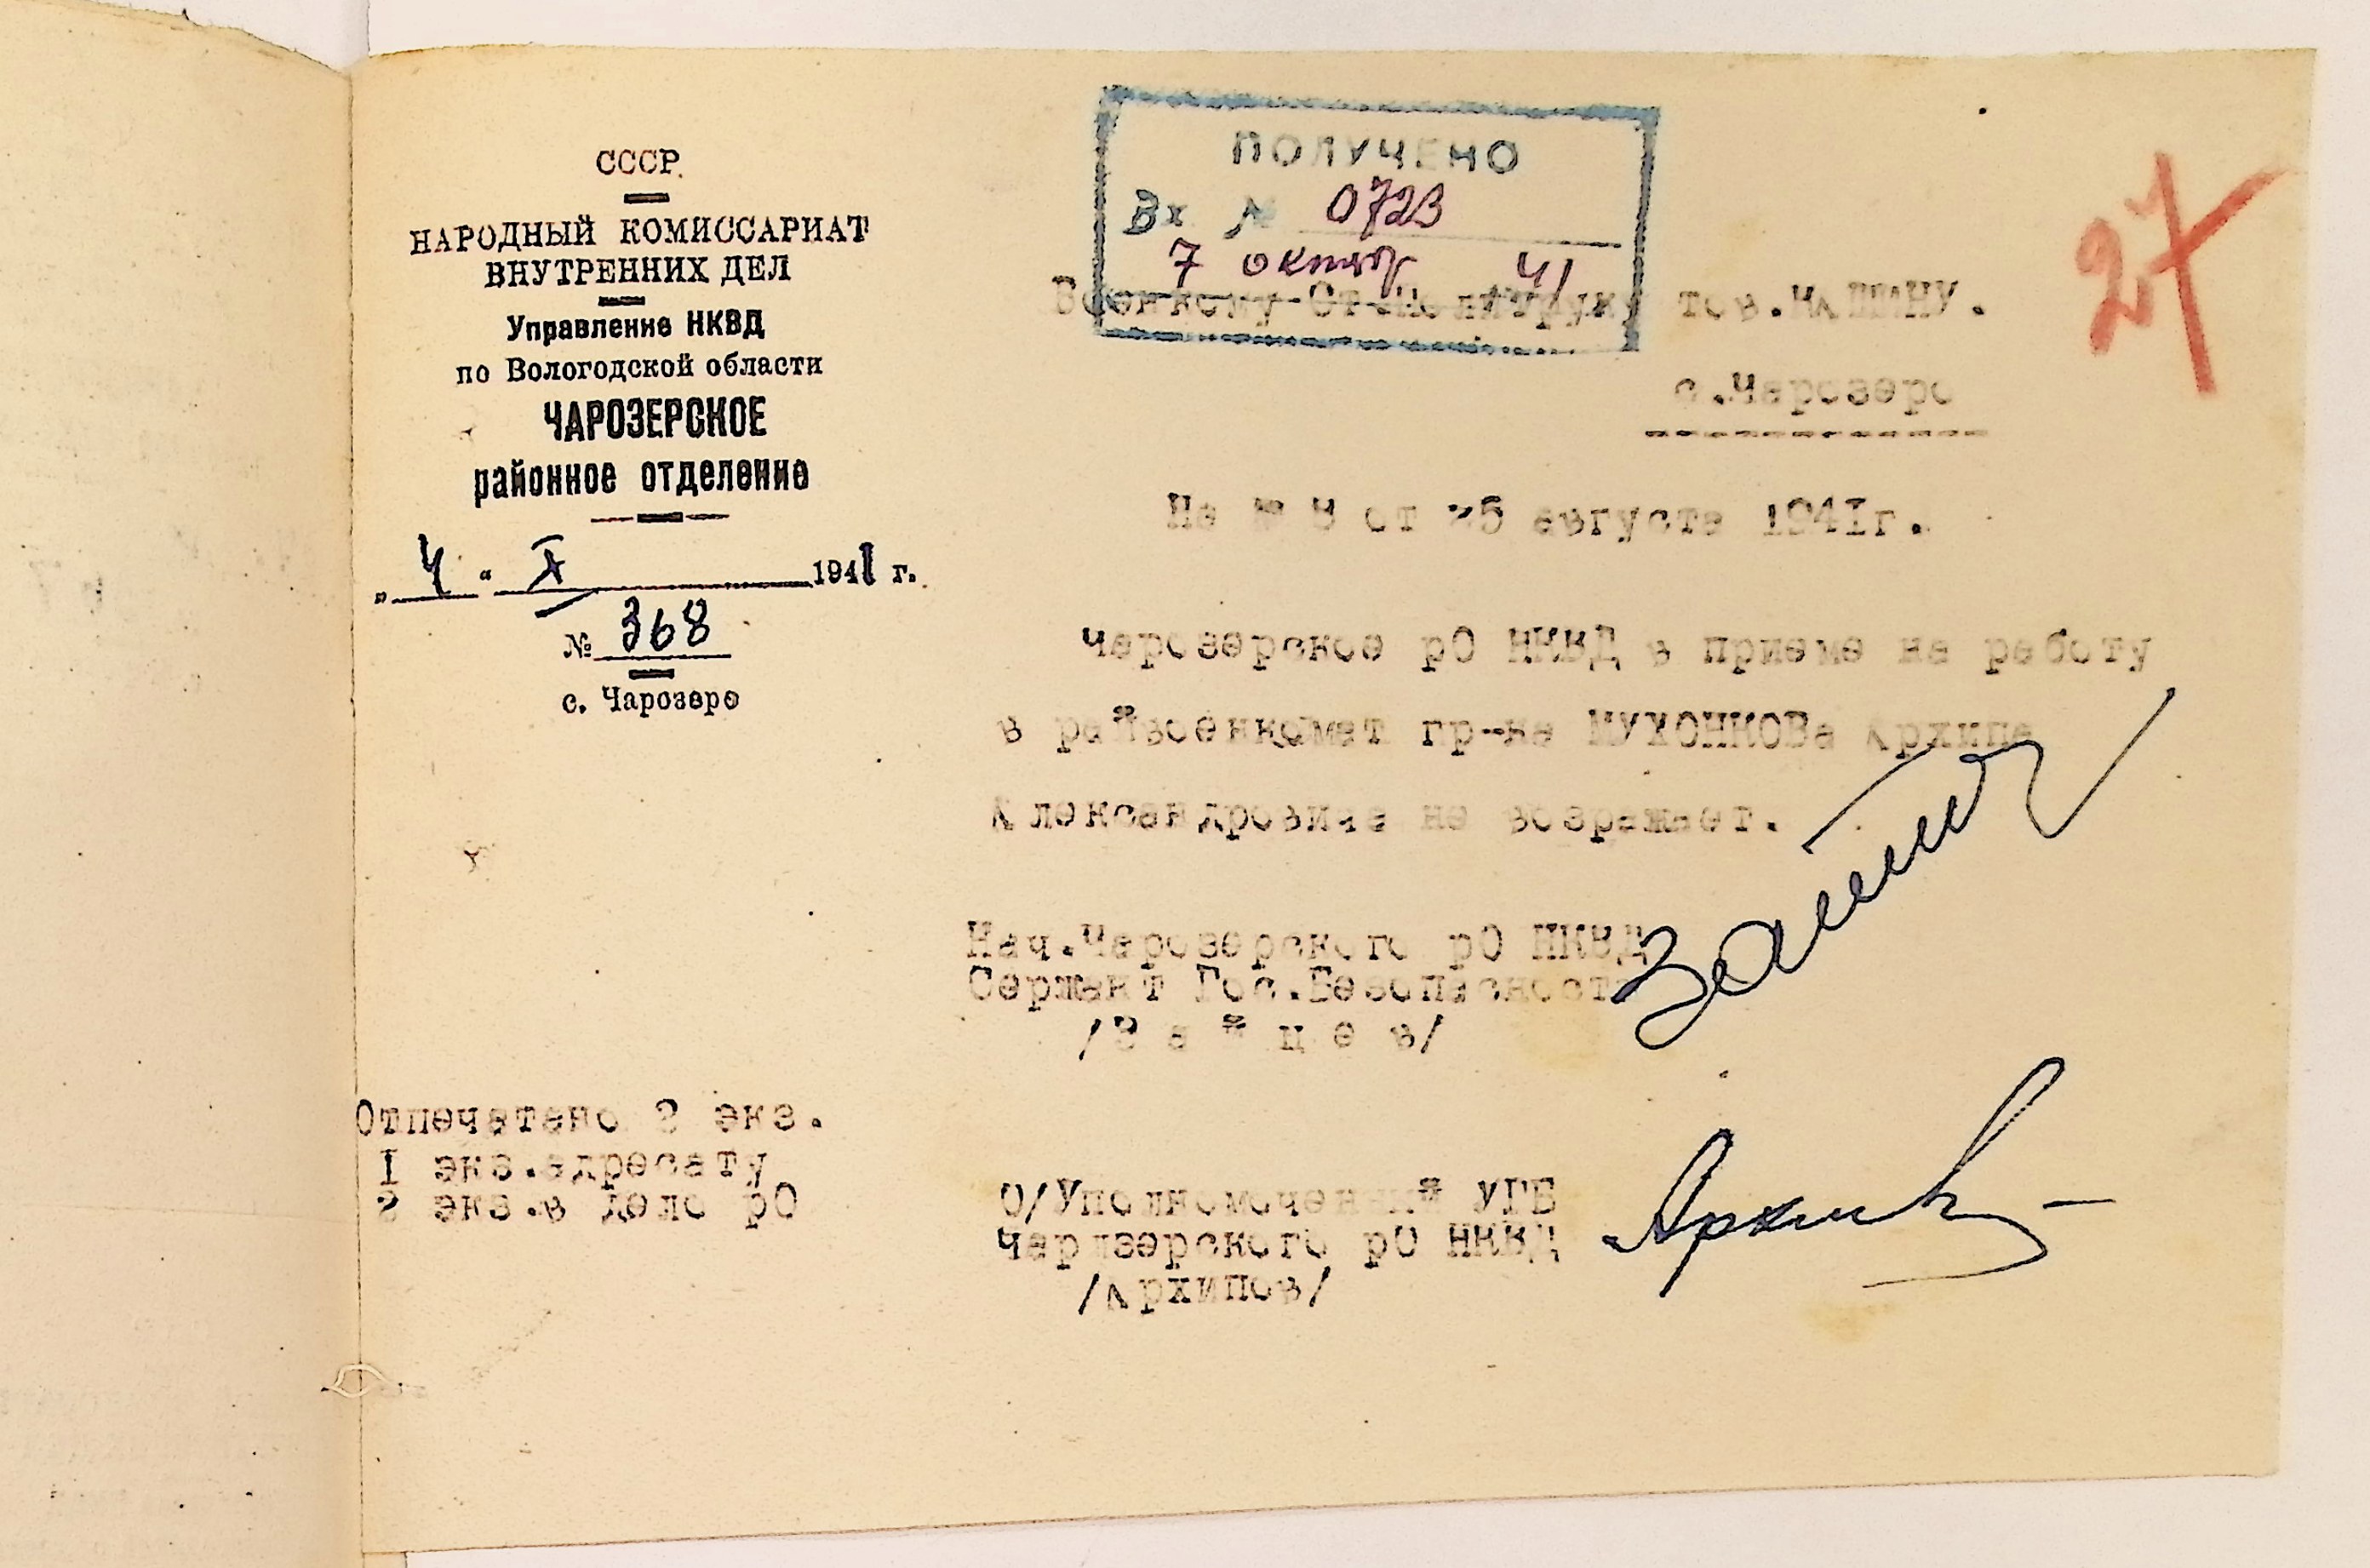 СССР.
НАРОДНЫЙ КОМИССАРИАТ
ВНУТРЕННИХ ДЕЛ
Управление НКВД
по Вологодской области
ЧАРОЗЕРСКОЕ
районное отделение
„4“ X 1941 г.
№ 368
с. Чарозеро
ПОЛУЧЕНО
Вх № 0723
7 октяб 41
Военкому Ст.Политруку тов.
с.Чарозеро
На № от 25 августа 1941г.
Чарозерское рО НКВД в приеме на работу
в райвоенкомат гр-на МУХОНКОВа Архипа
Александровича не возражает.
Нач.Чарозерского рО НКВД
Сержант Гос.Безопасност
/З а й ц е в/
Отпечатано 2 экз.
I экз.адресату
2 экз.в дело рО
О/Уполномоченный УГБ
Чарозерского рО НКВД
/Архипов/
27